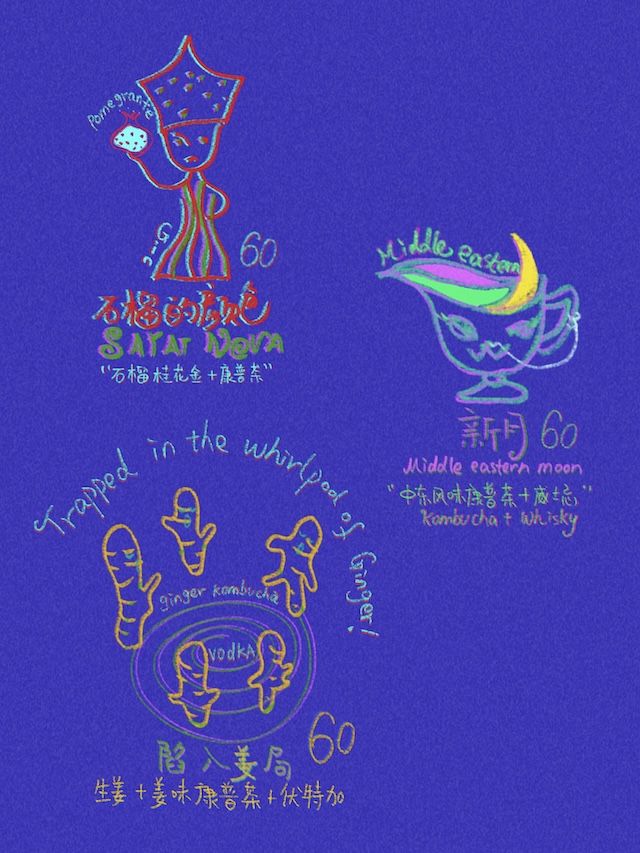 Pomegranate
Gin
60
石榴的颜色
SAYAT NOVA
"石榴桂花金+康普茶"
Middle eastern
新月 60
Middle eastern moon
"中东风味康普茶+威士忌"
Kombucha + Whisky
Trapped in the whirlpool of Ginger!
ginger kombucha
VODKA
陷入姜局
60
生姜+姜味康普茶+伏特加